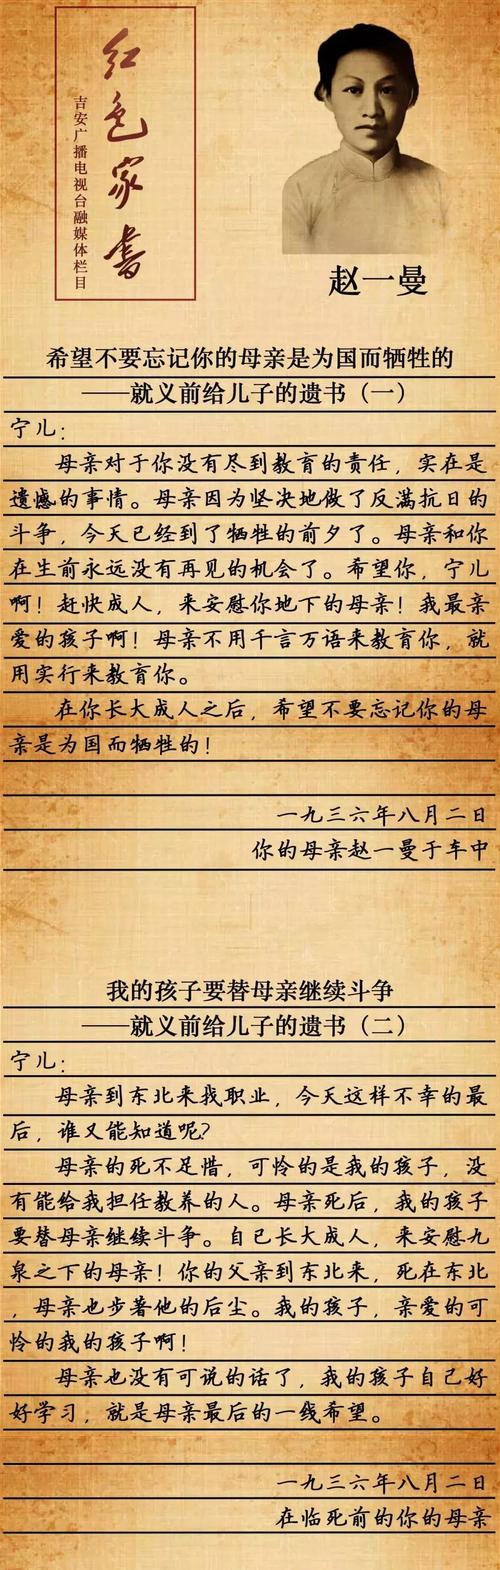 红色家书
吉安广播电视台融媒体栏目
赵一曼
希望不要忘记你的母亲是为国而牺牲的
——就义前给儿子的遗书（一）
宁儿：
母亲对于你没有尽到教育的责任，实在是
遗憾的事情。母亲因为坚决地做了反满抗日的
斗争，今天已经到了牺牲的前夕了。母亲和你
在生前永远没有再见的机会了。希望你，宁儿
啊！赶快成人，来安慰你地下的母亲！我最亲
爱的孩子啊！母亲不用千言万语来教育你，就
用实行来教育你。
在你长大成人之后，希望不要忘记你的母
亲是为国而牺牲的！
一九三六年八月二日
你的母亲赵一曼于车中
我的孩子要替母亲继续斗争
——就义前给儿子的遗书（二）
宁儿：
母亲到东北来找职业，今天这样不幸的最
后，谁又能知道呢？
母亲的死不足惜，可怜的是我的孩子，没
有能给我担任教养的人。母亲死后，我的孩子
要替母亲继续斗争。自己长大成人，来安慰九
泉之下的母亲！你的父亲到东北来，死在东北
，母亲也步著他的后尘。我的孩子，亲爱的可
怜的我的孩子啊！
母亲也没有可说的话了，我的孩子自己好
好学习，就是母亲最后的一线希望。
一九三六年八月二日
在临死前的你的母亲